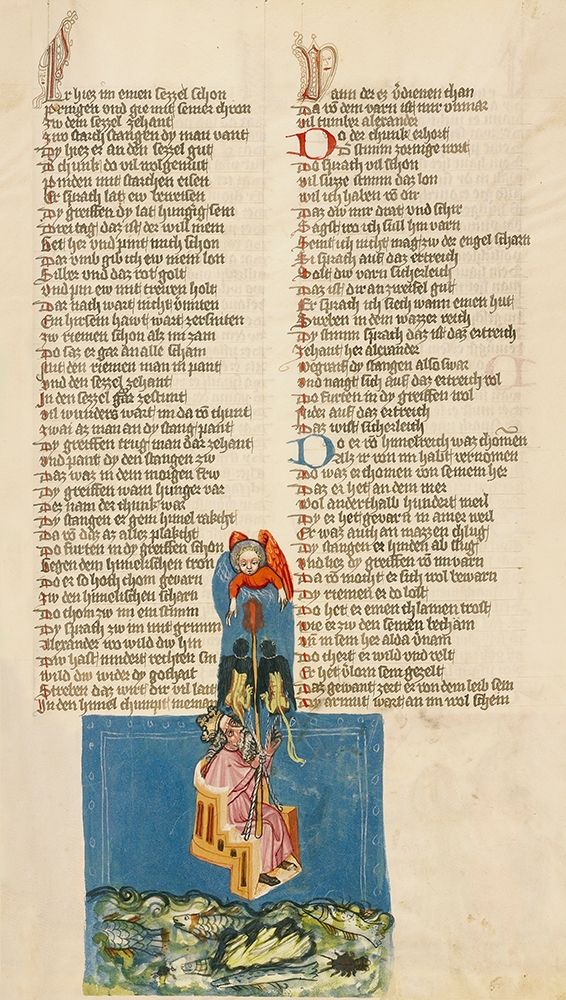 Er hiez im einen sezzel schon
Pringen vnd gie mit seiner chron
Zw dem sezzel zehant
Zwo starch stangen dy man vant
Dy hiez er an den sezel gut
D chunk do vil wolgemut
Pinden mit starchen eisen
Er sprach lat ew beweisen
Dy greiffen dy lat hungrig sein
Drei tag daz ist der will mein
Get her vnd pint mich schon
Dar vmb gib ich ew mein lon
Silber vnd daz rot golt
Vnd pin ew mit trewen holt
Dar nach wart nicht vermiten
Ein hirsein hawt wart zersniten
Zw riemen schon als im zam
Do saz er gar an alle scham
Mit den riemen man in pant
Vnd den sezzel zehant
In den sezzel gar zestunt
Vil wunders wart im da von chunt
Zwai az man an dy stang pant
Dy greiffen trug man dar zehant
Vnd pant dy den stangen zw
Daz waz in dem morgen frw
Dy greiffen warn hunger var
Der nam der chunk war
Dy stangen er gein himel rakcht
Da von dir az alles plakcht
Do furten in dy greiffen schon
Gegen dem himelischen tron
Do er so hoch chom gevarn
Zw den himelischen scharn
Do chom zw im ein stimm
Dy sprach zw im mit grimm
Alexander wo wild dw hin
Dw hast nindert rechten sin
Wild dw wider go
Streben daz wirt dir vil lait
In den himel chumpt nieman
Wann der ez verdienen chan
Da von dein varn ist mir vnmar
Vil tumber alexander
Do der chunk erhort
D stimm zornige wort
Do sprach vil schon
Vil suzze stimm daz lon
Wil ich haben von dir
Daz dw mir drat vnd schir
Sagst wo ich sull hin varn
Seint ich nicht mag zw der engel scharn
Si sprach auf daz ertreich
Solt dw varn sicherleich
Daz ist dir an zweifel gut
Er sprach ich siech wann einen hut
Sweben in dem wazzer reich
Dy stimm sprach daz ist daz ertreich
Zehant her alexander
Begraif dy stangen also swar
Vnd naigt sich auf daz ertreich wol
Do furten in dy greiffen vol
Nider auf daz ertreich
Daz wist sicherleich
Do er von himelreich waz chomen
Als wir von im habn vernomen
Do waz er chomen von seinem her
Daz er het an dem mer
Wol anderthalb hundert meil
Dy er het gevarn in ainer weil
Er waz auch an mazzen chlug
Dy stangen er hinden ab slug
Vnd hez dy greiffen von im varn
Da von mocht er sich wol bewarn
Dy riemen er do lost
Do het er einen chlainen trost
Wie er zw den seinen becham
In sein her alda vernam
Do chert er wild vnd velt
Er het verlorn sein gezelt
Daz gewant zert er von dem leib sein
Dy armut wart an im wol schein